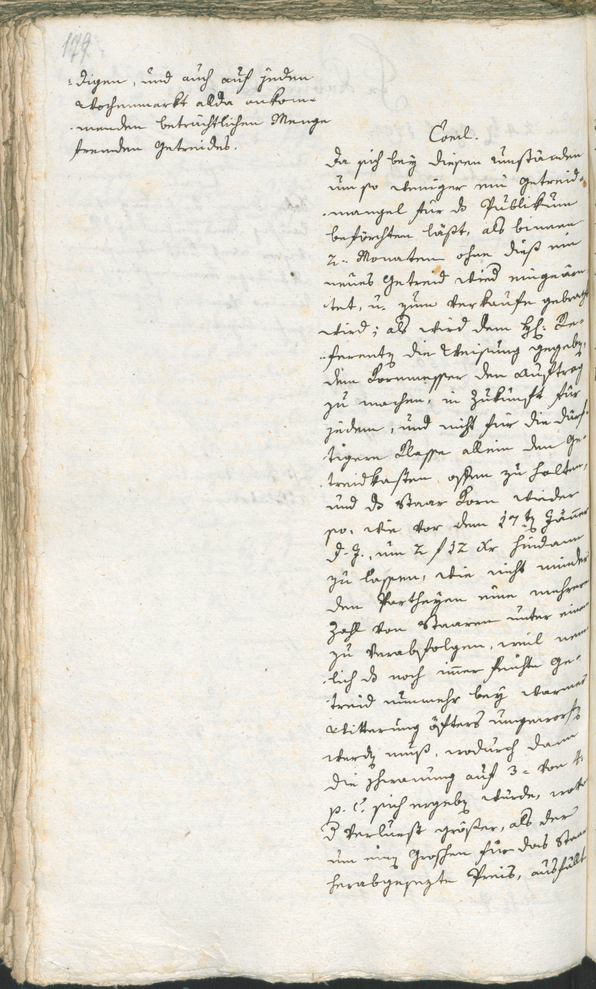 179.
digen, und auch auf jeden
Wochenmarkt alda ankom-
menden beträchtlichen Menge
fremden Getreides.
Concl.
Da sich bey diesen Umständen
um so weniger ein Getreid-
mangel für ds Publikum
beförchten läßt, als binnen
2. Monaten ohne dieß ein
neues Getreid wird eingeärn
tet, u. zum Verkaufe gebracht
wird; als wird dem H: Re-
ferenten die Weisung gegeben,
dem Kornmesser den Auftrag
zu machen, in Zukunft für
jeden, und nicht für die dürf-
tigere Klasse allein den Ge-
treidkasten offen zu halten,
und ds Staar Korn wieder
so, wie vor dem 17 Jäner
d. J., um 2 f 12 xr hindann
zu lassen, wie nicht minder
den Partheyen eine mehrere
Zahl von Staaren unter einem
zu verabfolgen, weil nem
lich ds noch immer feuchte Ge-
treid nunmehr bey warmer
Witterung öfters umgeworfen
werden muß, wodurch dann
die Schwinung auf 3 - von
p. C sich ergeben würde,
d Verlurst größer, als der
um einen Groschen für das Staar
herabgesezte Preis, ausfällt